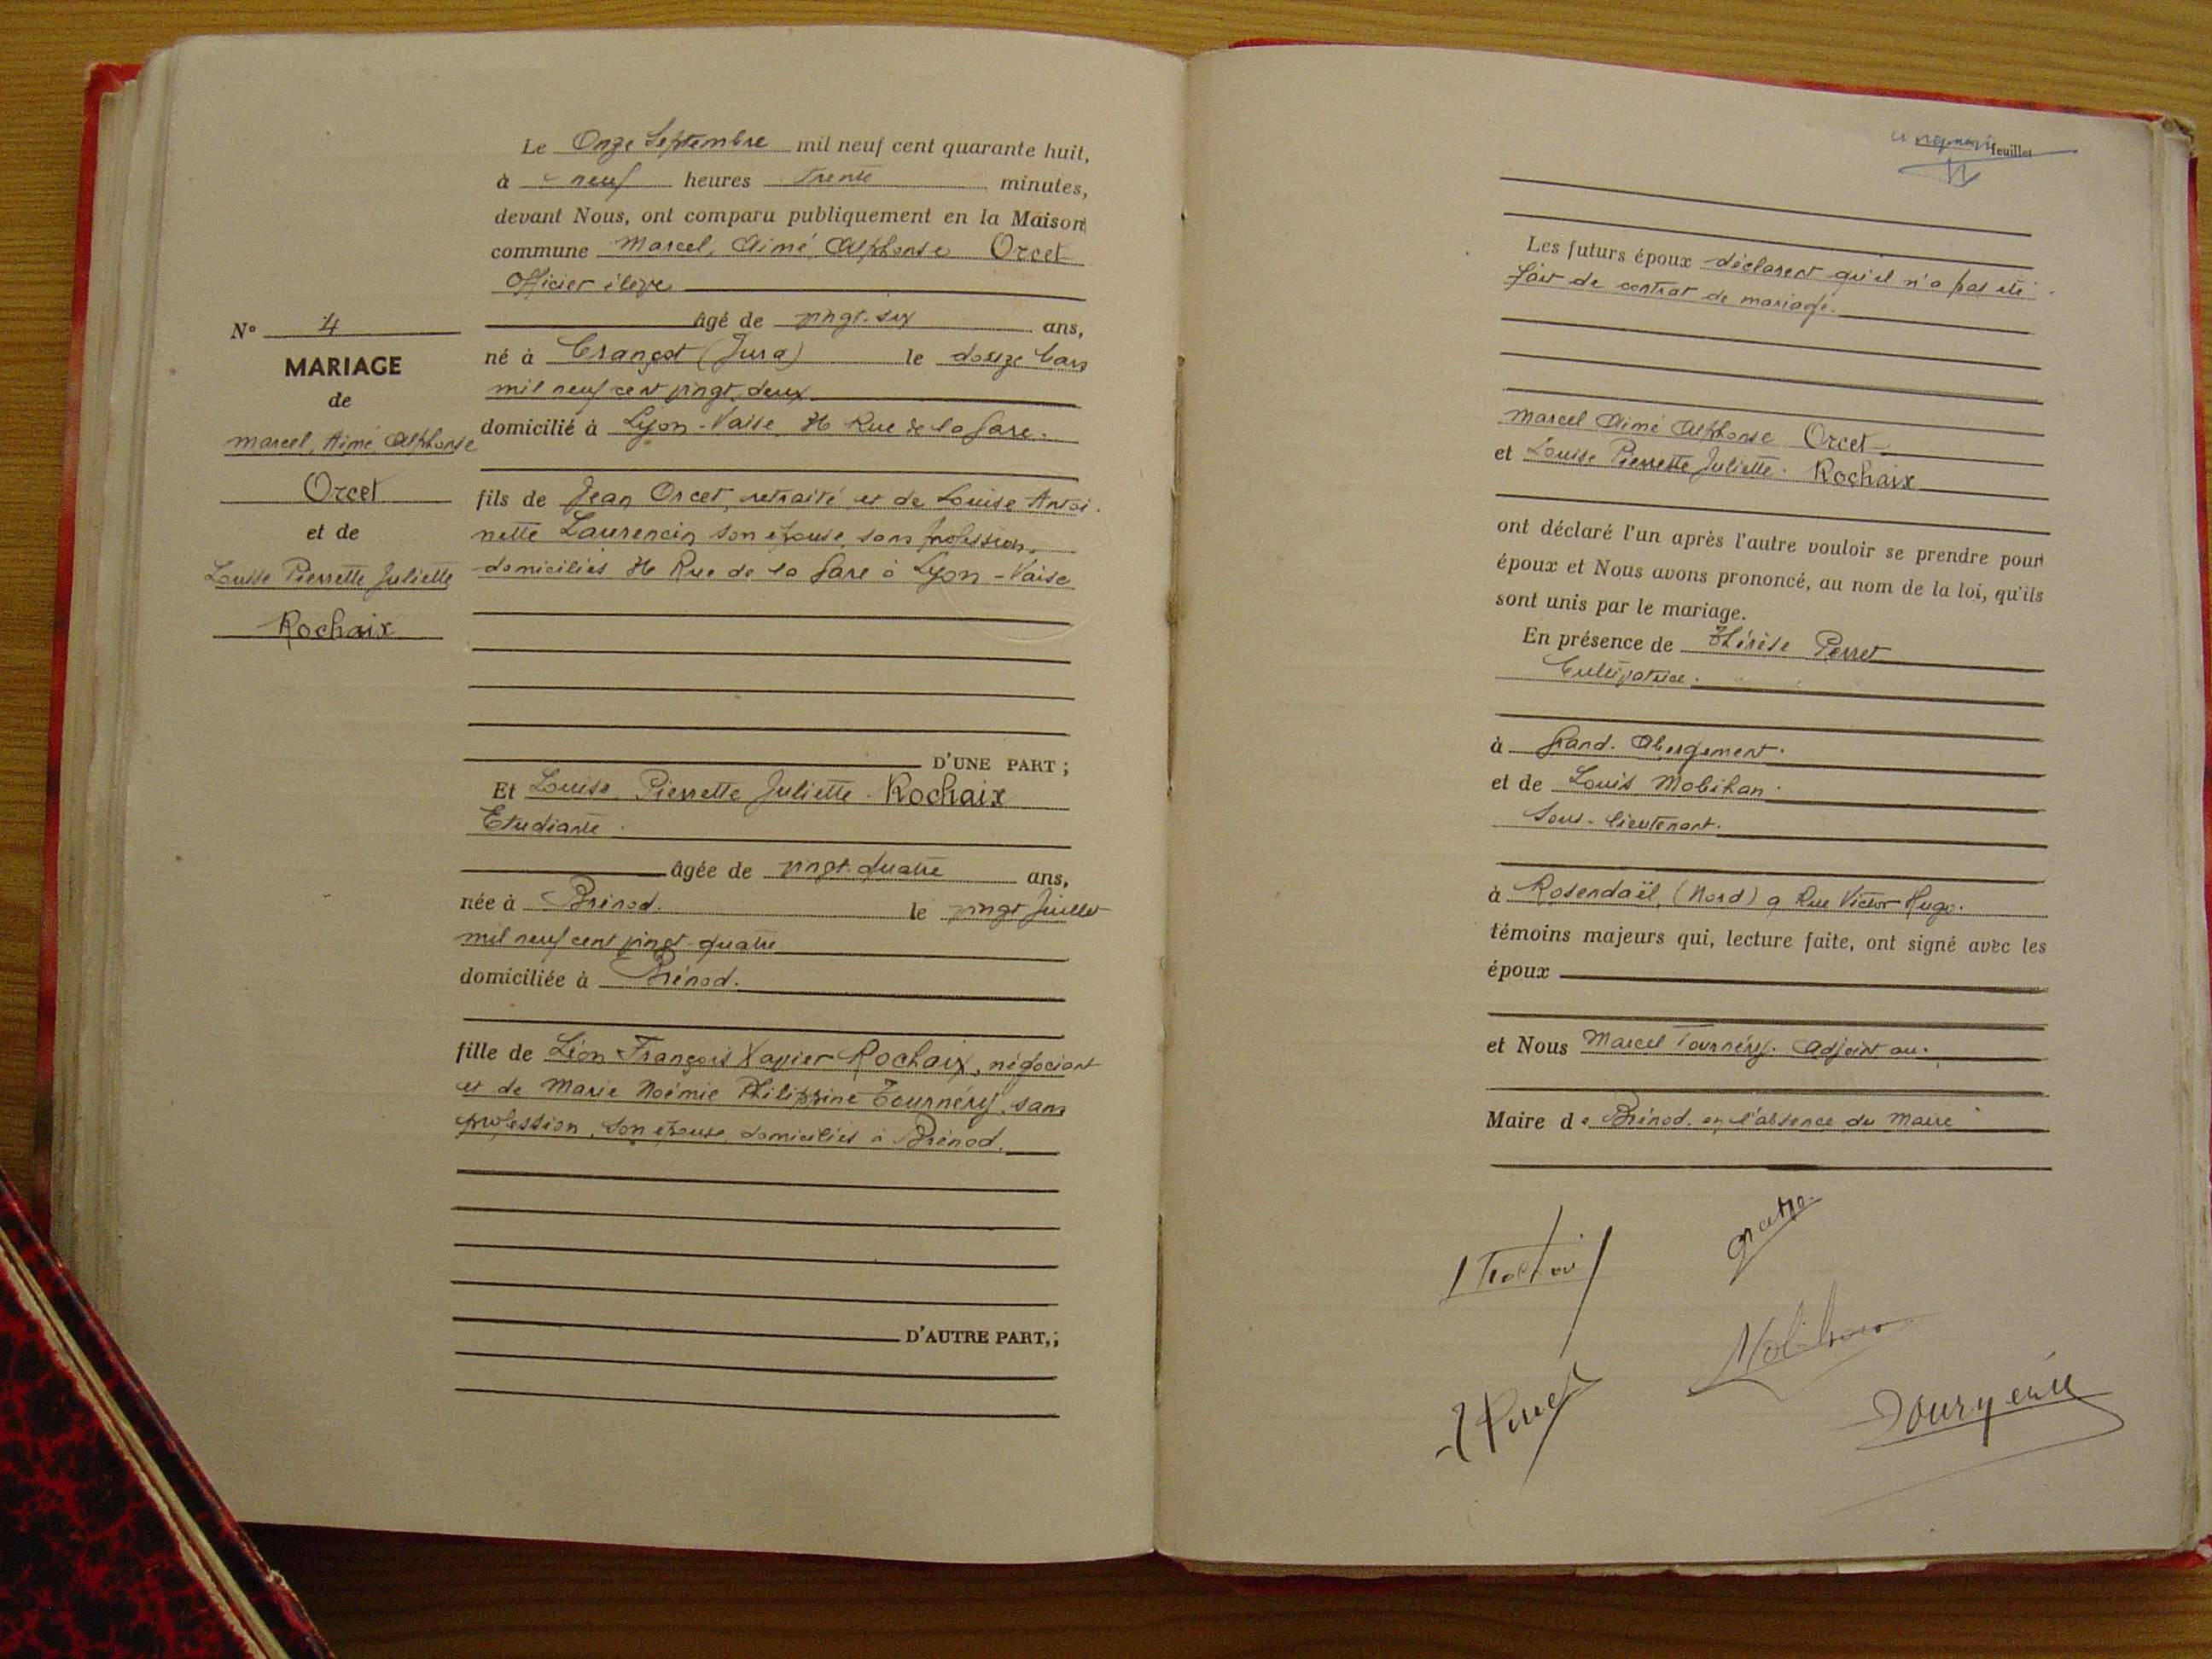 Le Onze Septembre mil neuf cent quarante huit,
à neuf heures Trente minutes,
devant Nous, ont comparu publiquement en la Maison
commune Marcel, Aimé Alphonse Orcet
Officier élève
âgé de vingt-six ans,
né à Crançot (Jura) le douze Mars
mil neuf cent vingt-deux
domicilié à Lyon-Vaise Rue de la Gare.
fils de Jean Orcet, retraité et de Louise Antoi-
nette Laurencin son épouse, sans profession,
domiciliés Rue de la Gare à Lyon-Vaise
D'UNE PART ;
Et Louise Pierrette Juliette Rochaix
Etudiante.
âgée de vingt-quatre ans,
née à Brénod. le vingt Juillet
mil neuf cent vingt-quatre
domiciliée à Brénod.
fille de Léon François Xavier Rochaix, négociant
et de Marie Noémie Philippine Tournéry, sans
profession, son épouse, domiciliés à Brénod.
D'AUTRE PART,;
N° 4
MARIAGE
de
Marcel, Aimé Alphonse
Orcet
et de
Louise Pierrette Juliette
Rochaix
feuillet
Les futurs époux déclarent qu'il n'a pas été
fait de contrat de mariage.
Marcel Aimé Alphonse Orcet
et Louise Pierrette Juliette. Rochaix
ont déclaré l'un après l'autre vouloir se prendre pour
époux et Nous avons prononcé, au nom de la loi, qu'ils
sont unis par le mariage.
En présence de Thérèse Perret
Cultivatrice.
à Grand. Abergement.
et de Louis Mobihan.
Sous-lieutenant.
à Rosendaël, (Nord) 9 Rue Victor Hugo.
témoins majeurs qui, lecture faite, ont signé avec les
époux
et Nous Marcel Tournéry. Adjoint au.
Maire de Brénod. en l'absence du Maire
Mobihan